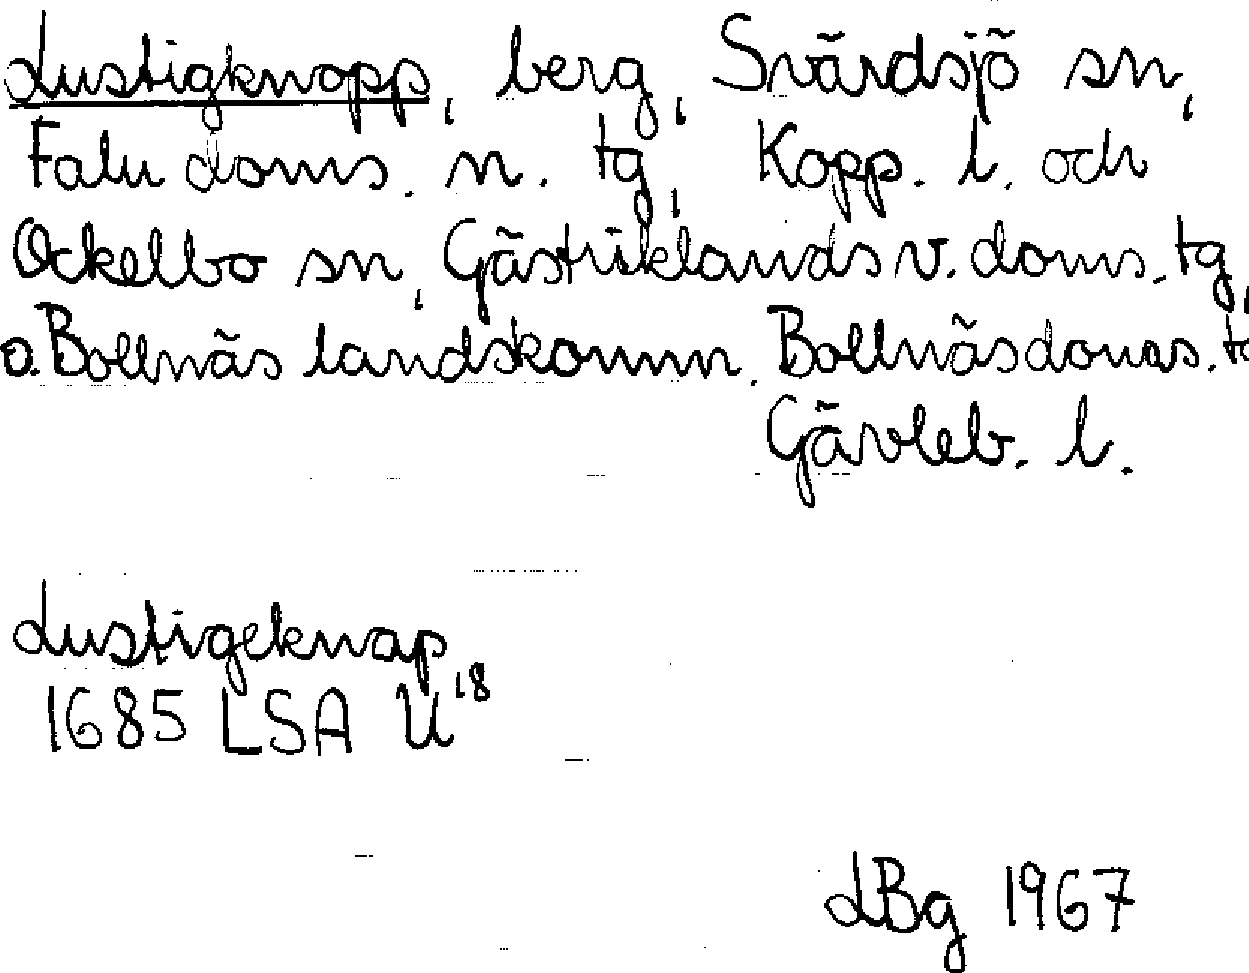 Lustigknopp, berg, Svärdsjö sn,
Falu doms. n. tg, Kopp. l. och
Ockelbo sn, Gästriklands v. doms. tg,
o. Bollnäs landskomm. Bollnäs domas. tg
Gävleb. l.
Lustigeknap
1685 LSA U18
LBg 1967